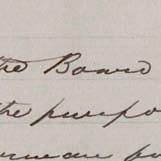 the Board
the purpo